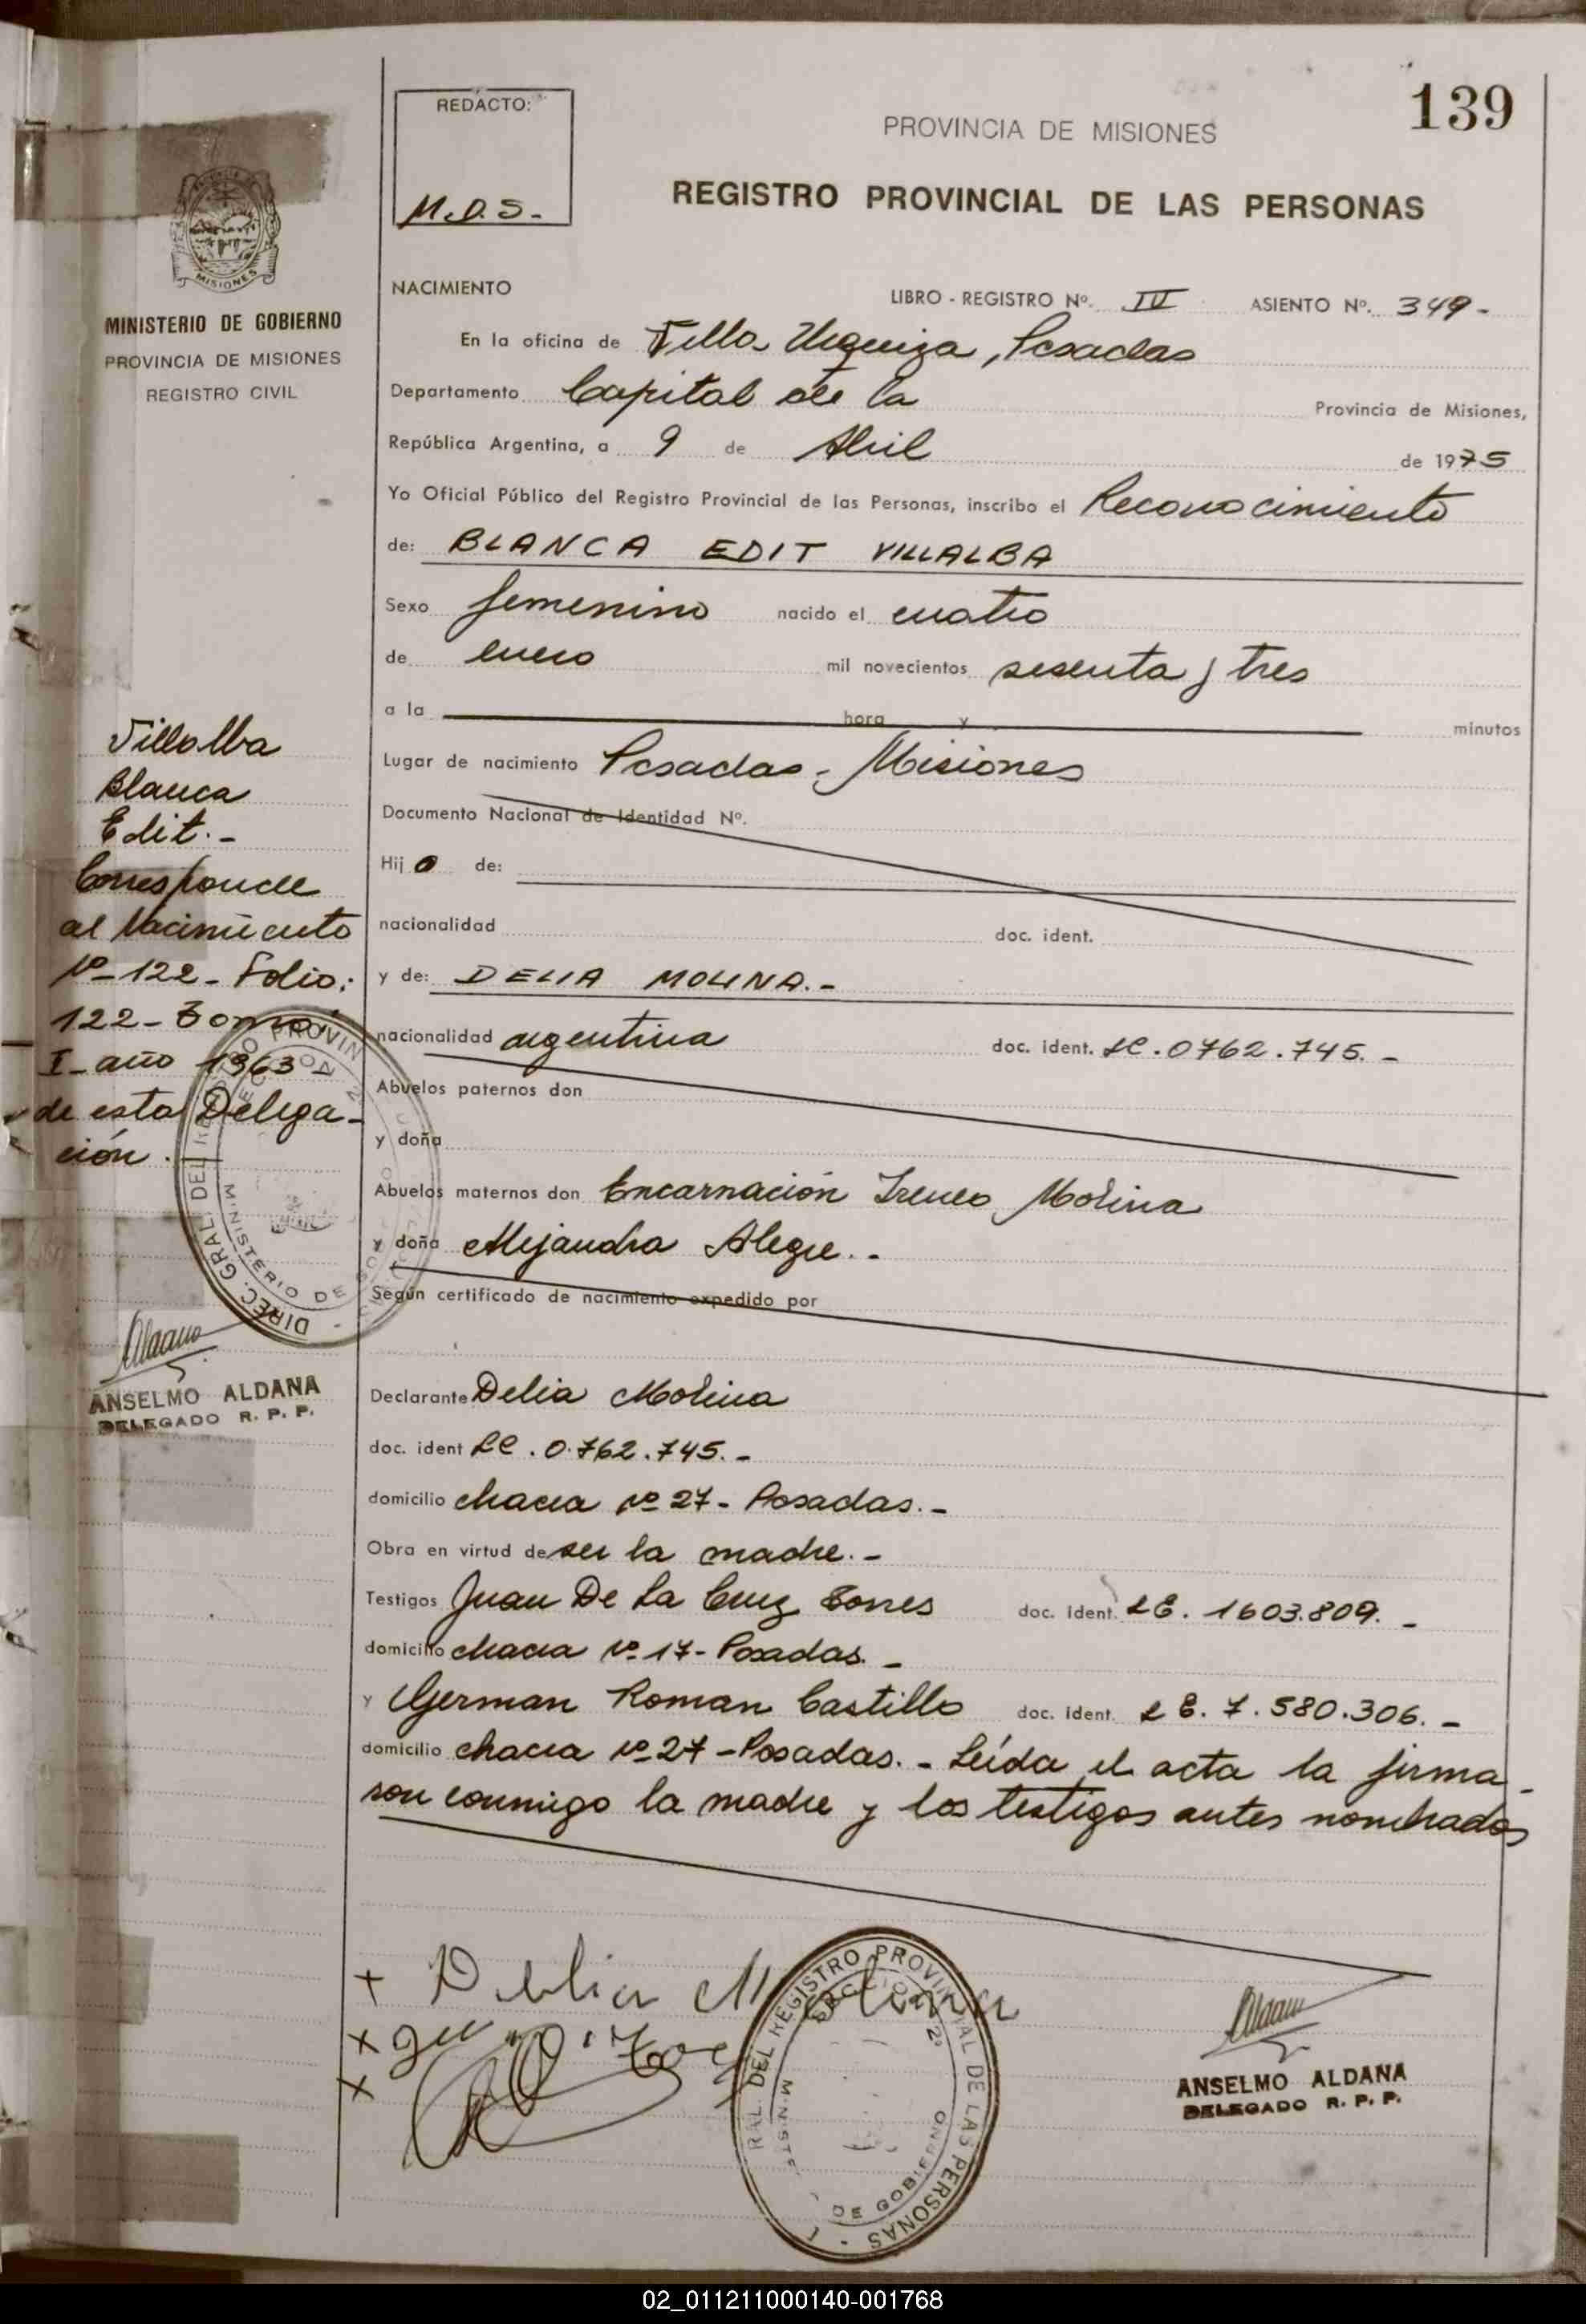 139
REDACTO:
M.D.S.-
PROVINCIA DE MISIONES
REGISTRO PROVINCIAL DE LAS PERSONAS
MISIONES
MINISTERIO DE GOBIERNO
PROVINCIA DE MISIONES
REGISTRO CIVIL
NACIMIENTO
LIBRO - REGISTRO Nº. IV ASIENTO Nº. 349-
En la oficina de Villa Urquiza, Posadas
Departamento Capital de la Provincia de Misiones,
República Argentina, a 9 de Abril de 1975
Yo Oficial Público del Registro Provincial de las Personas, inscribo el Reconocimiento
de: BLANCA EDIT VILLALBA
Sexo femenino nacido el cuatro
de enero mil novecientos sesenta y tres
a la hora y minutos
Lugar de nacimiento Posadas - Misiones
Documento Nacional de Identidad Nº.
Hij a de:
nacionalidad doc. ident.
y de: DELIA MOLINA.-
nacionalidad argentina doc. ident. LC.0762.745.-
Abuelos paternos don
y doña
Abuelos maternos don Encarnación Ireneo Molina
y doña Alejandra Alegre.-
Según certificado de nacimiento expedido por
Declarante Delia Molina
doc. ident LC.0.762.745.-
domicilio chacra Nº 27- Posadas.-
Obra en virtud de ser la madre.-
Testigos Juan De La Cruz Torres doc. Ident. LE. 1603.809.-
domicilio chacra Nº 17- Posadas.-
y German Roman Castillo doc. Ident. LE. 7.580.306.-
domicilio chacra Nº 27-Posadas.- Leída el acta la firma-
ron conmigo la madre y los testigos antes nombrados
Villalba
Blanca
Edit.-
Corresponde
al Nacimiento
Nº-122- Folio:
122- Tomo:
I- año 1963
de esta Delega-
ción.-
DIREC. GRAL. DEL REGISTRO PROVIN
MINISTERIO DE
ANSELMO ALDANA
DELEGADO R. P. P.
x Delia Molina
x
x
RAL. DEL REGISTRO PROVINCIAL DE LAS PERSONAS
SECCION 2º
DE GOBIERNO
ANSELMO ALDANA
DELEGADO R. P. P.
02_011211000140-001768